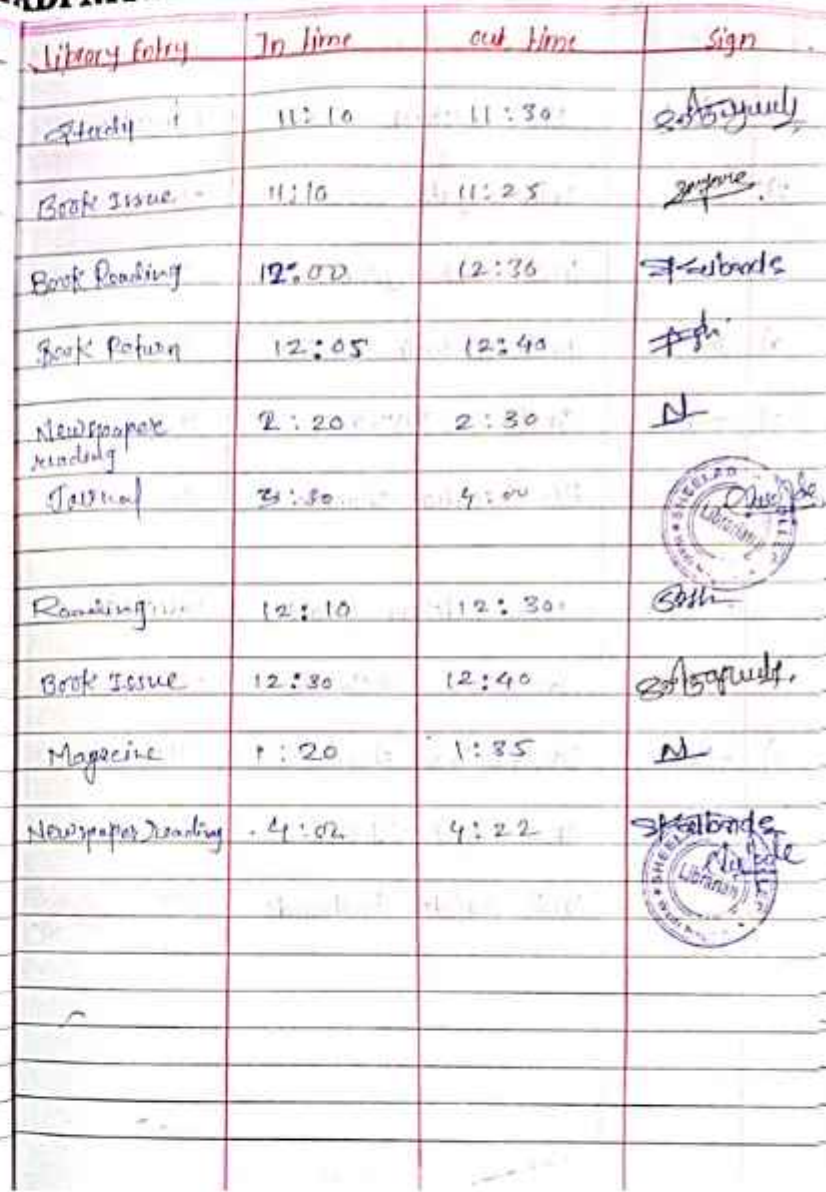 Library Entry In time out time Sign
Study 11:10 11:30
Book Issue 11:10 11:25
Book Reading 12:00 12:30
Book Return 12:05 12:40
Newspaper 2:20 2:30 N
reading
Journal 3:30 4:00
Librarian
Reading 12:10 12:30
Book Issue 12:30 12:40
Magecine 1:20 1:35 N
Newspaper reading 4:02 4:22
Librarian